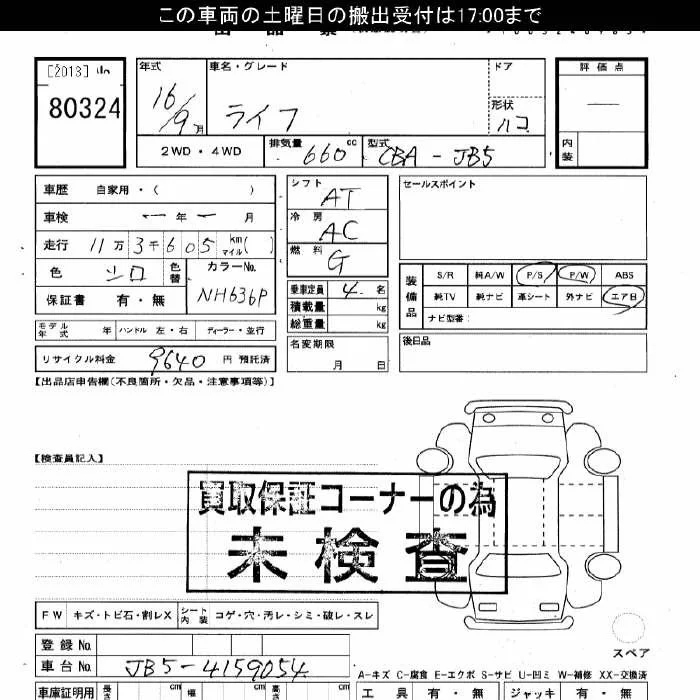 この車両の土曜日の搬出受付は17:00まで
[2013]
80324
年式 車名・グレード ドア 評価点
16/9月 ライフ 形状 ハコ
2WD・4WD 排気量 660cc 型式 CBA-JB5 内装
車歴 自家用・( )
車検 ー年ー月
走行 11万3千605km マイル( )
色 シロ 色替 カラーNo. NH636P
保証書 有・無
シフト AT
冷房 AC
燃料 G
乗車定員 4名
積載量 kg
総重量 kg
セールスポイント
装備品 S/R 純A/W P/S P/W ABS
純TV 純ナビ 革シート 外ナビ エアB
ナビ型番:
モデル年式 年 ハンドル 左・右 ディーラー・並行
名変期限 月 日
後日品
リサイクル料金 9640円 預託済
【出品店申告欄(不良箇所・欠品・注意事項等)】
【検査員記入】
買取保証コーナーの為
未検査
FW キズ・トビ石・割レX シート内装 コゲ・穴・汚レ・シミ・破レ・スレ
登録No.
車台No. JB5-4159054
スペア
A-キズ C-腐食 E-エクボ S-サビ U-凹ミ W-補修 XX-交換済
車庫証明用 長さ cm 幅 cm 高さ cm 工具 有・無 ジャッキ 有・無